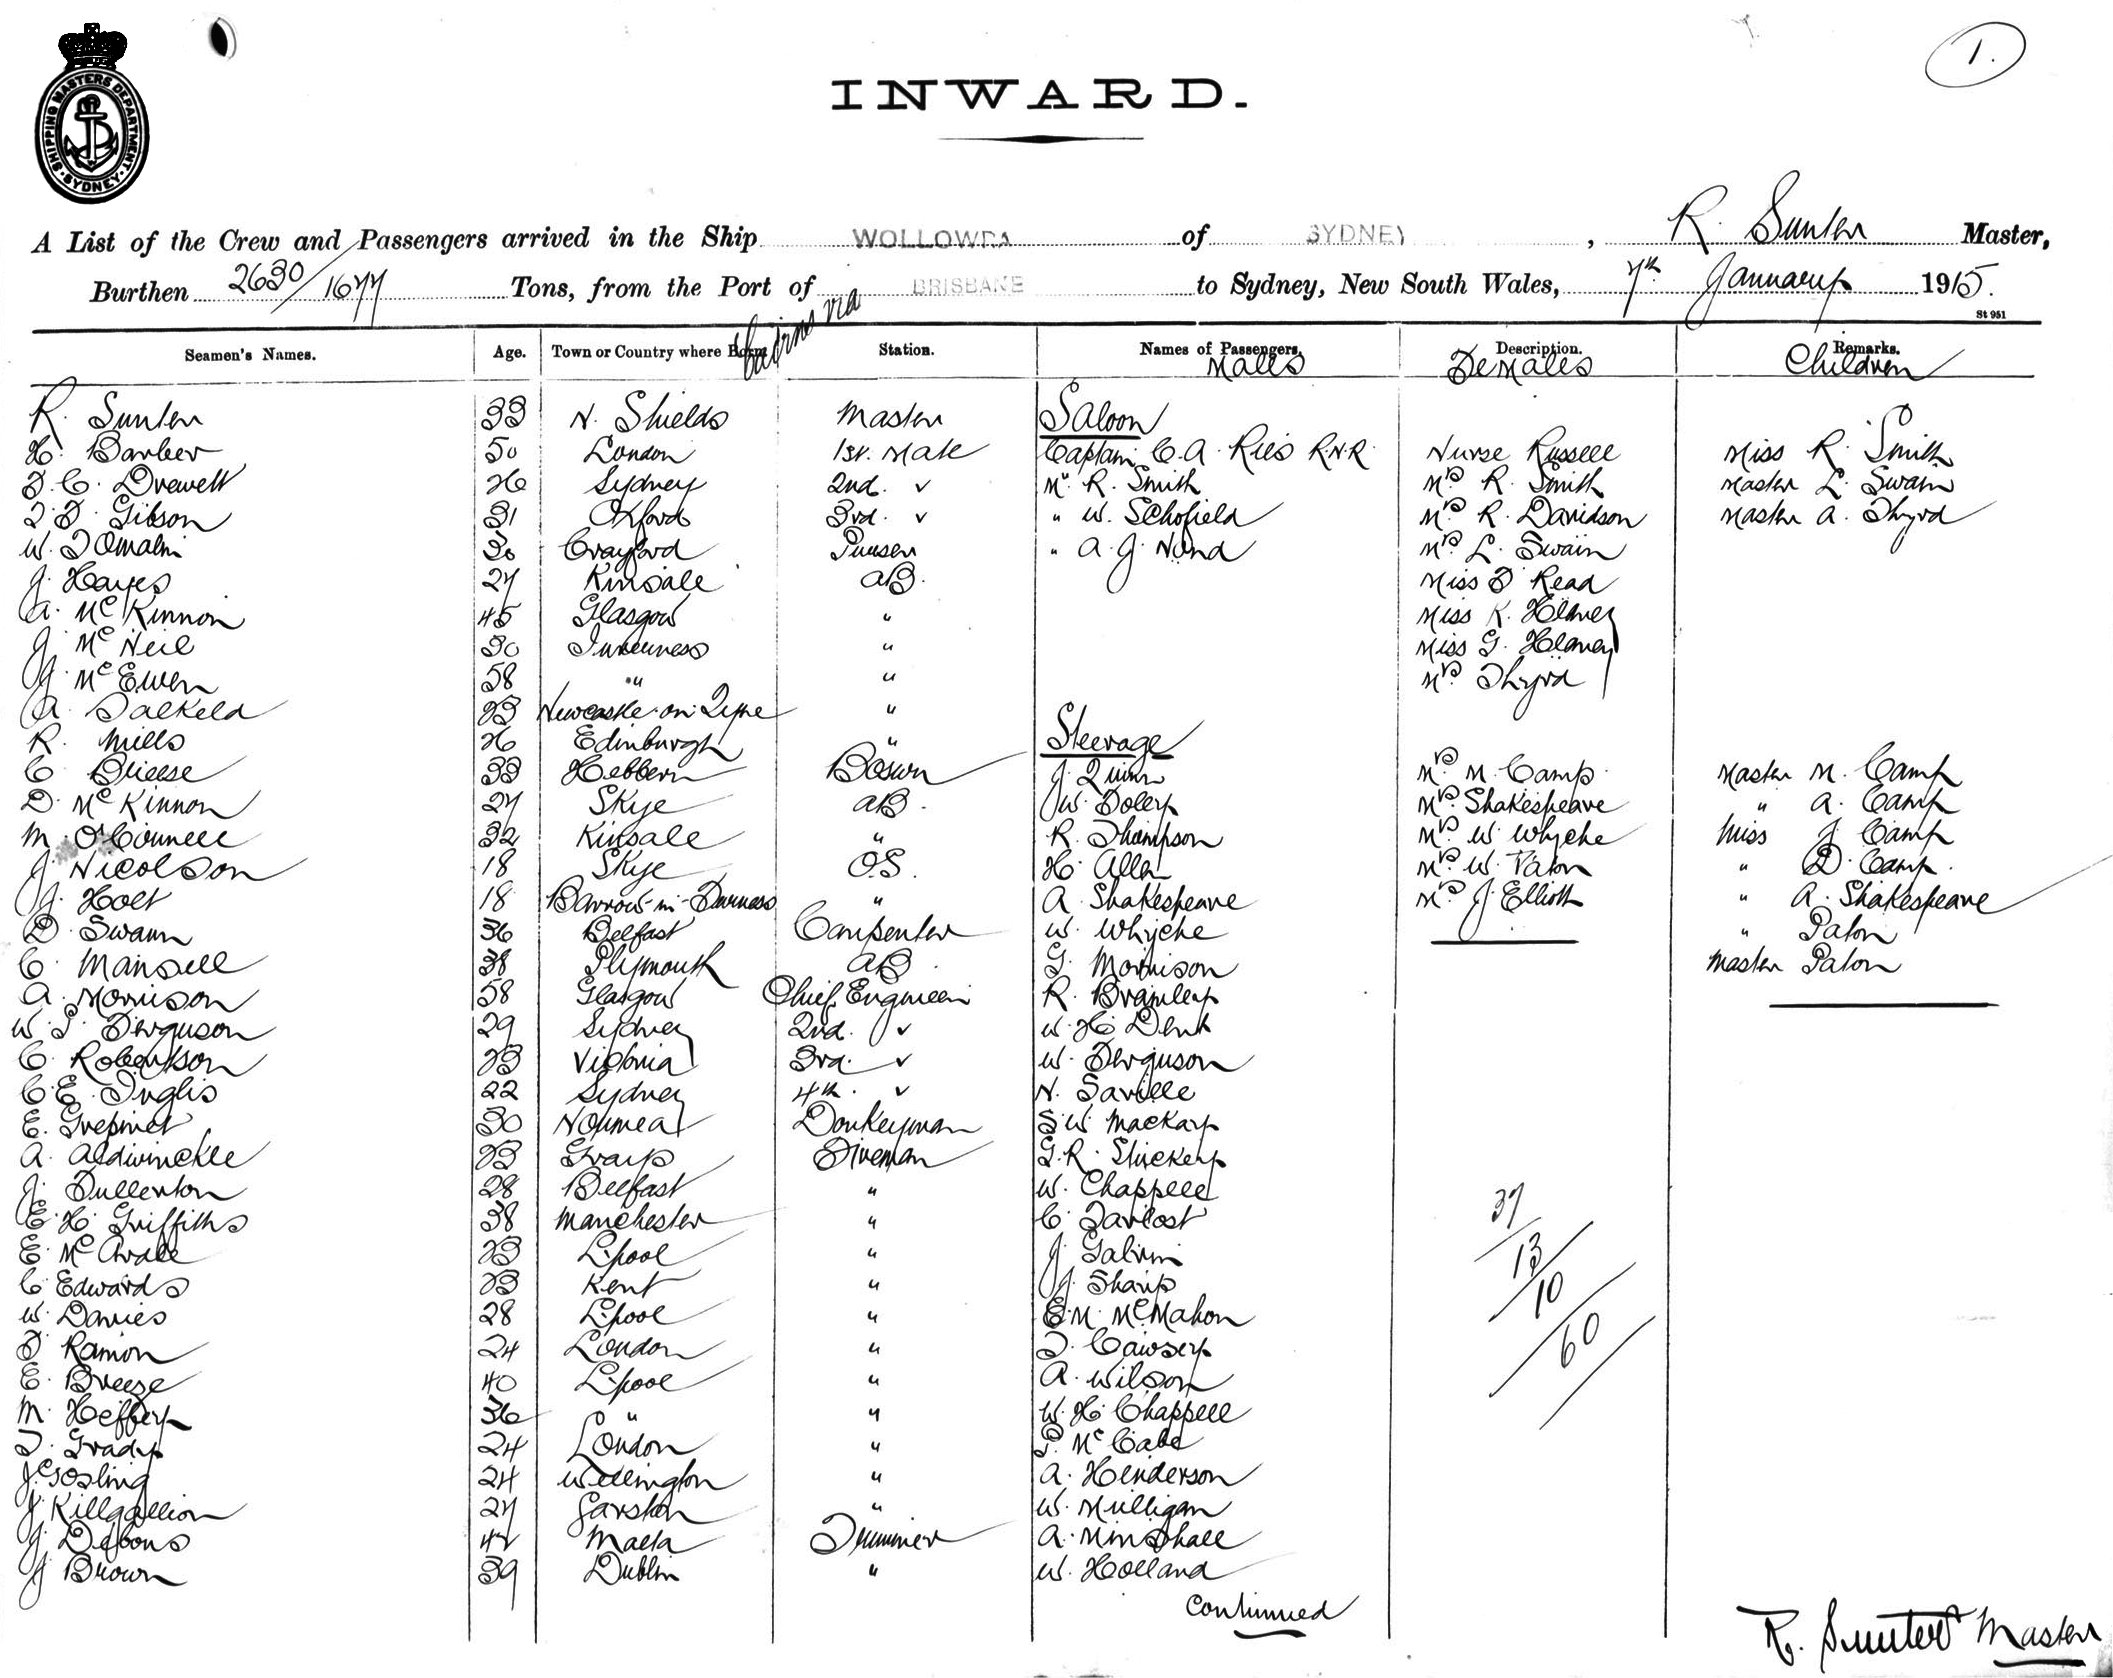 1.
SHIPPING MASTERS DEPARTMENT. SYDNEY.
INWARD.
A List of the Crew and Passengers arrived in the Ship WOLLOWRA of SYDNEY, R. Sunter Master,
Burthen 2630/1677 Tons, from the Port of Cairns via BRISBANE to Sydney, New South Wales, 7th January 1915.
St 951
Seamen's Names. Age. Town or Country where Born. Station. Names of Passengers. Description. Remarks.
Males Females Children
R. Sunter 33 N. Shields Master Saloon
H. Barber 50 London 1st. Mate Captain C. A. Rees R.N.R. Nurse Russell Miss R. Smith
F. C. Drewett 26 Sydney 2nd. " Mr R. Smith Mrs R. Smith Master L. Swain
T. F. Gibson 31 Oxford 3rd. " " W. Schofield Mrs R. Davidson Master A. Thyrd
W. Tomalin 30 Crayford Purser " A. J. Nund Mrs L. Swain
J. Hayes 27 Kinsale AB. Miss F. Read
A. McKinnon 45 Glasgow " Miss K. Hlaney
J. McNeil 30 Inverness " Miss G. Hlaney
J. McEwen 58 " " Mrs Thyrd
A. Salkeld 23 Newcastle-on-Tyne "
R. Mills 26 Edinburgh " Steerage
C. Bliese 33 Hebbern Bosun J. Quinn Mrs M. Camp Master M. Camp
D. McKinnon 27 Skye AB. W. Foley Mrs Shakespeare " A. Camp
M. O'Connell 32 Kinsale " R. Thompson Mrs W. Whyche Miss J. Camp
J. Nicolson 18 Skye O.S. H. Allen Mrs W. Paton " D. Camp.
J. Holt 18 Barrow-in-Furness " A. Shakespeare Mrs J. Elliott " A. Shakespeare
D. Swann 36 Belfast Carpenter W. Whyche " Paton
C. Mansell 38 Plymouth AB. G. Morrison Master Paton
A. Morrison 58 Glasgow Chief Engineer R. Bramley
W. S. Ferguson 29 Sydney 2nd. " W. H. Dent
C. Robertson 23 Victoria 3rd. " W. Ferguson
C. E. Inglis 22 Sydney 4th. " N. Saville
E. Grepinet 30 Noumea Donkeyman S. W. Mackay
A. Aldwinckle 23 Grays Fireman G. R. Stuckey
J. Fullerton 28 Belfast " W. Chappell
E. H. Griffiths 38 Manchester " C. Tarlost
E. McArdle 23 L.pool " J. Galvin
C. Edwards 23 Kent " J. Sharp
W. Davies 28 L.pool " E. M. McMahon
F. Ramon 24 London " T. Cawsey
E. Breeze 40 L.pool " A. Wilson
M. Heffery 36 " " W. H. Chappell
T. Grady 24 London " P. McCabe
J. Gosling 24 Wellington " A. Henderson
J. Killgallion 27 Garston " W. Mulligan
J. Debons 42 Malta Trimmer A. Minshall
J. Brown 39 Dublin " W. Holland
37
13
10
60
Continued
R. Sunter Master